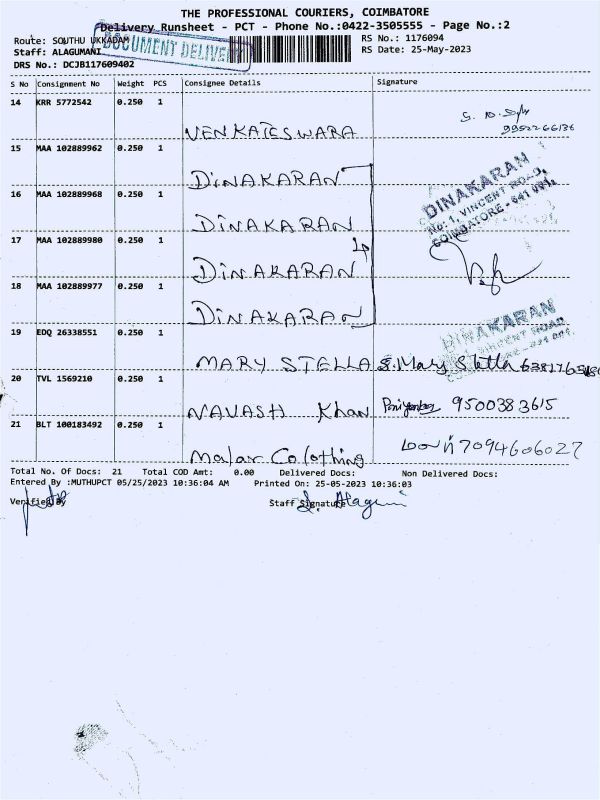 THE PROFESSIONAL COURIERS, COIMBATORE
Delivery Runsheet - PCT - Phone No.:0422-3505555 - Page No.:2
Route: SOUTHU UKKADAM
DOCUMENT DELIVE
RS No.: 1176094
Staff: ALAGUMANI
RS Date: 25-May-2023
DRS No.: DCJB117609402
S No Consignment No Weight PCS Consignee Details Signature
14 KRR 5772542 0.250 1
VENKATESWARA
15 MAA 102889962 0.250 1
DINAKARAN
DINAKARAN
No: 1, VINCENT ROAD,
COIMBATORE - 641 001.
16 MAA 102889968 0.250 1
DINAKARAN
17 MAA 102889980 0.250 1
DINAKARAN
18 MAA 102889977 0.250 1
DINAKARAN
DINAKARAN
VINCENT ROAD
19 EDQ 26338551 0.250 1
MARY STELLA S. Mary Stella
20 TVL 1569210 0.250 1
NAVASH Khan 9500383615
21 BLT 100183492 0.250 1
Malar Colothing 7094606027
Total No. Of Docs: 21 Total COD Amt: 0.00 Delivered Docs: Non Delivered Docs:
Entered By :MUTHUPCT 05/25/2023 10:36:04 AM Printed On: 25-05-2023 10:36:03
Verified By Staff Signature